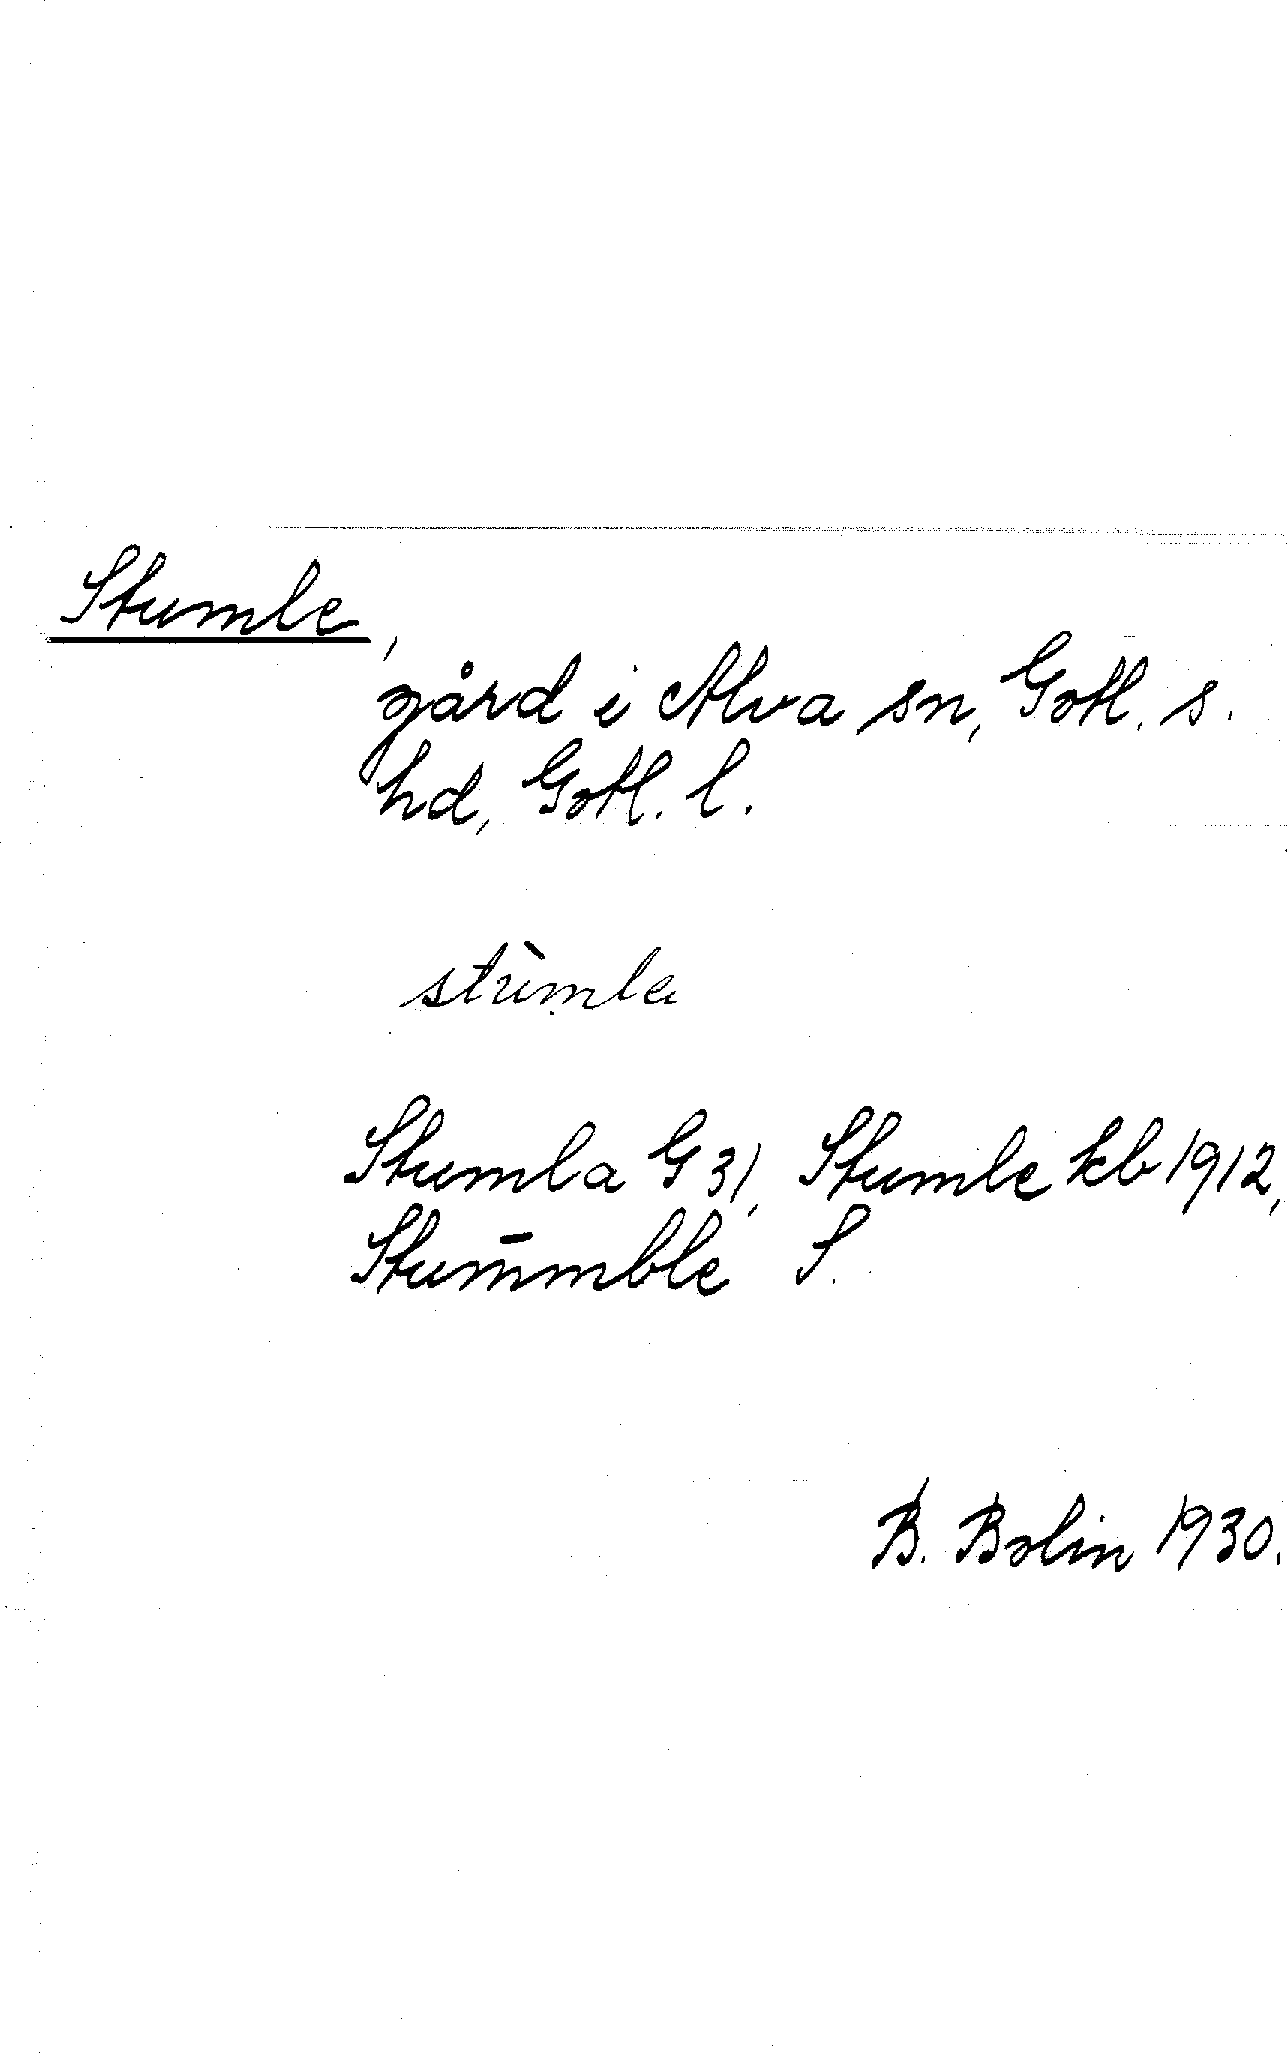 Stumle,
gård i Alva sn, Gotl. s.
hd, Gotl. l.
stùmla
Stumla G 31, Stumle kb 1912,
Stum̅mble S.
B. Bolin 1930.